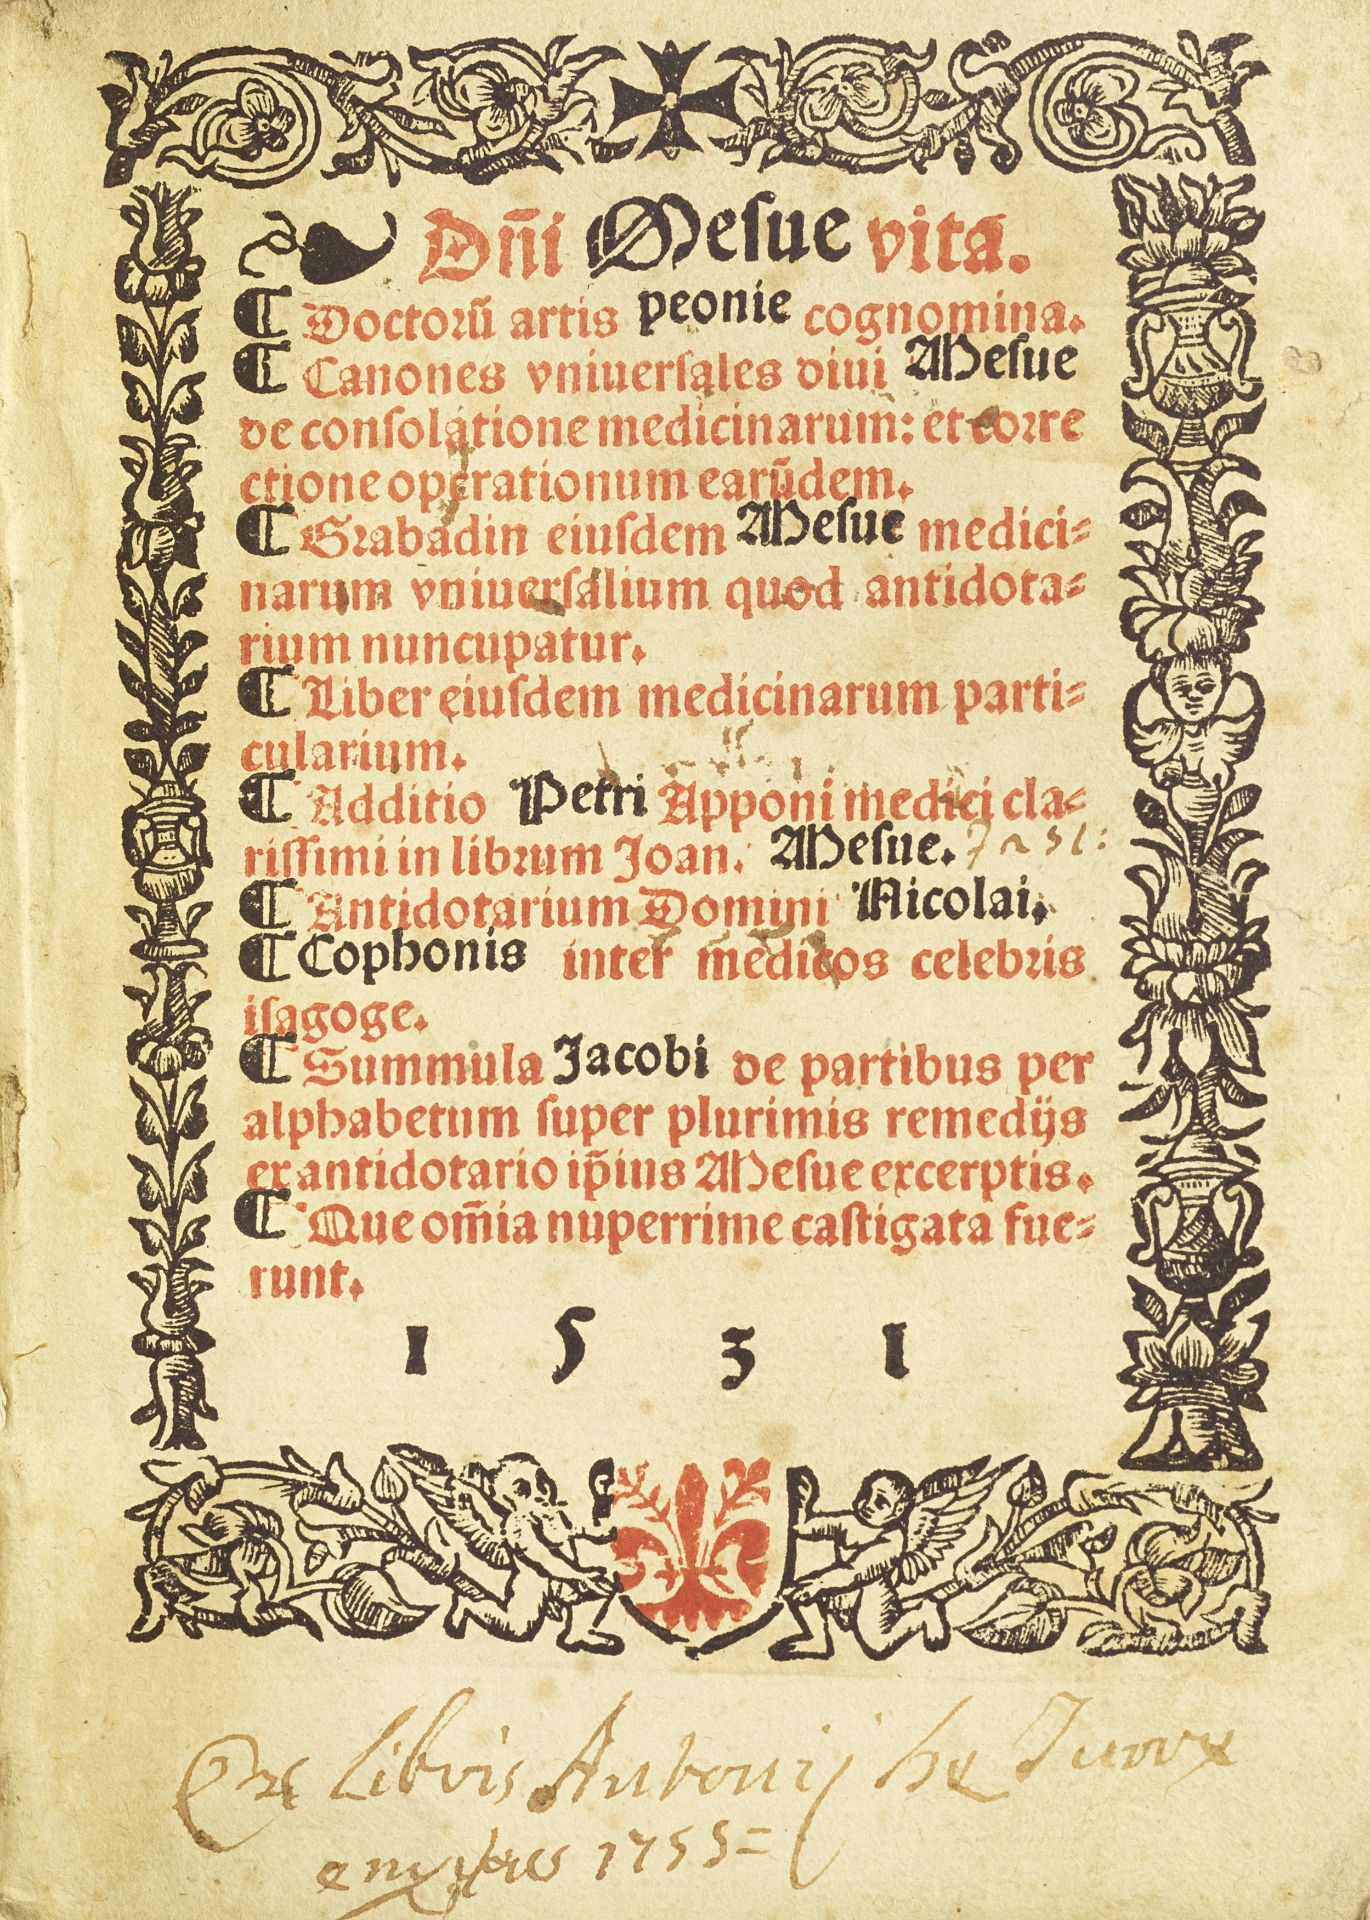 Dñi Mesue vita.
Doctorũ artis peonie cognomina.
Canones vniuersales diui Mesue
de consolatione medicinarum: et corre
ctione operationum earũdem.
Grabadin eiusdem Mesue medici-
narum vniuersalium quod antidota-
rium nuncupatur.
Liber eiusdem medicinarum parti-
cularium.
Additio Petri Apponi medici cla-
rissimi in librum Joan. Mesue.
Antidotarium Domini Nicolai.
Cophonis inter medicos celebris
isagoge.
Summula Jacobi de partibus per
alphabetum super plurimis remedijs
ex antidotario ip̃ius Mesue excerptis.
Que om̃ia nuperrime castigata fue-
runt.
1531
Ex Libris Antonij
1755